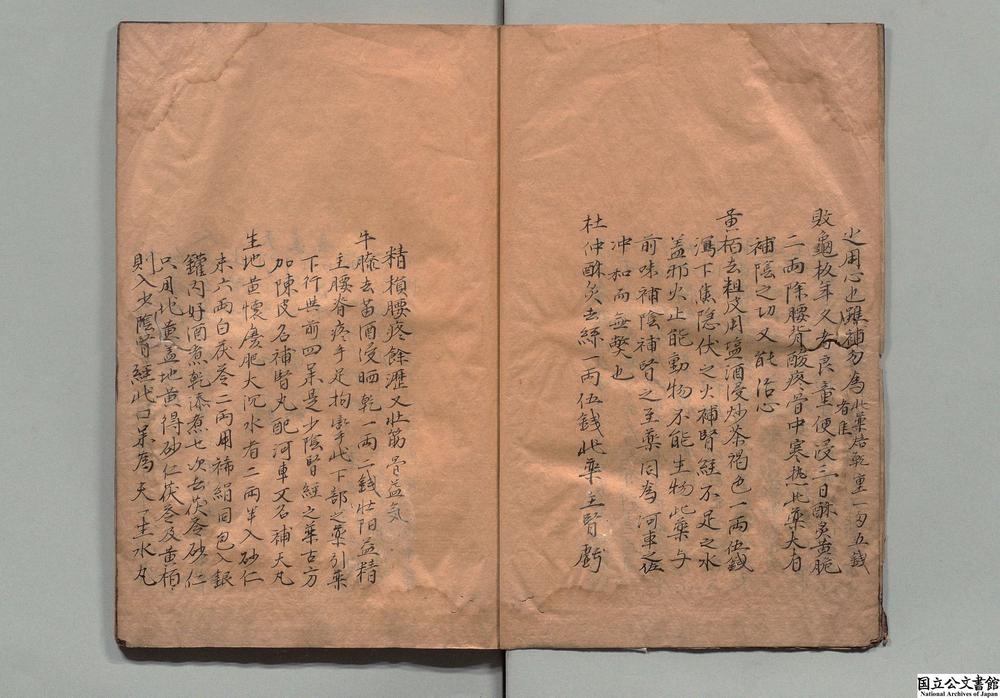 之用心也雖補勿為此藥焙乾重一旬五錢
者佳
敗龜板年久者良童便浸三日酥炙黃脆
二兩除腰背酸疼骨中寒熱此藥大有
補陰之切又能治心
黃栢去粗皮用塩酒浸炒茶褐色一兩伍錢
瀉下焦隐伏之火補腎經不足之水
盖邪火止能動物不能生物此藥与
前味補陰補腎之至藥同為河車之佐
冲和而無弊也
杜仲酥炙去絲一兩伍錢此藥主腎虧
精損腰疼餘瀝又壮筋骨益氣
牛膝去苗酒浸晒乾一兩二錢壮阳益精
主腰脊疼手足拘挛此下部之藥引藥
下行與前四味是少陰腎經之藥古方
加陳皮名補腎丸配河車又名補天丸
生地黃懷慶肥大沉水者二兩半入砂仁
末六兩白茯苓二兩用稀絹同包入銀
鑵內好酒煮乾添煮七次去茯苓砂仁
只用地黃盖地黃得砂仁茯苓及黃栢
則入少陰腎經此四味為天一生水丸
国立公文書館
National Archives of Japan